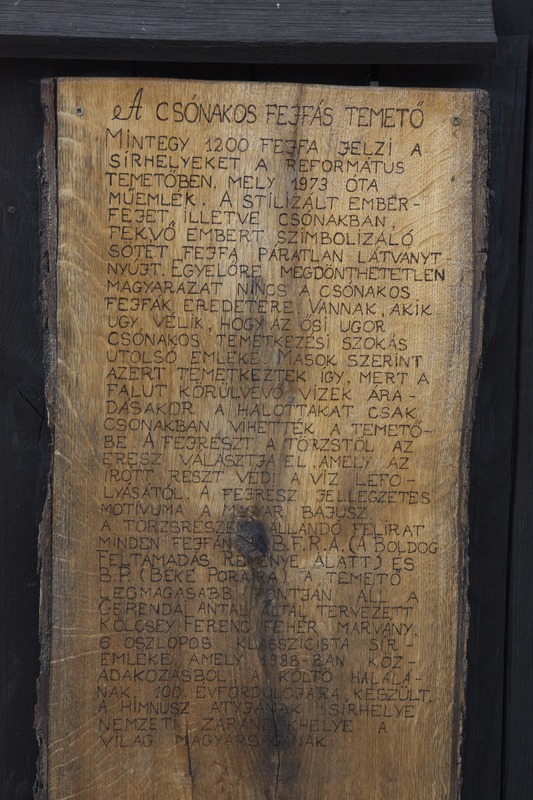 A CSÓNAKOS FEJFÁS TEMETŐ
MINTEGY 1200 FEJFA JELZI A
SÍRHELYEKET A REFORMÁTUS
TEMETŐBEN, MELY 1973 ÓTA
MŰEMLÉK. A STILIZÁLT EMBER-
FEJET, ILLETVE CSÓNAKBAN
FEKVŐ EMBERT SZIMBOLIZÁLÓ
SÖTÉT FEJFA PÁRATLAN LÁTVÁNYT
NYÚJT. EGYELŐRE MEGDÖNTHETETLEN
MAGYARÁZAT NINCS A CSÓNAKOS
FEJFÁK EREDETÉRE VANNAK, AKIK
ÚGY VÉLIK, HOGY AZ ŐSI UGOR
CSÓNAKOS TEMETKEZÉSI SZOKÁS
UTOLSÓ EMLÉKE. MÁSOK SZERINT
AZÉRT TEMETKEZTEK ÍGY, MERT A
FALUT KÖRÜLVEVŐ VIZEK ÁRA-
DÁSAKOR A HALOTTAKAT CSAK
CSÓNAKBAN VIHETTÉK A TEMETŐ-
BE A FEJRÉSZT A TÖRZSTŐL AZ
ERESZ VÁLASZTJA EL, AMELY AZ
ÍROTT RÉSZT VÉDI A VÍZ LEFO-
LYÁSÁTÓL. A FEJRÉSZ JELLEGZETES
MOTÍVUMA A MAGYAR BAJUSZ
A TÖRZSRÉSZEN ÁLLANDÓ FELIRAT
MINDEN FEJFÁN A B.F.R.A. (A BOLDOG
FELTÁMADÁS REMÉNYE ALATT) ÉS
B.P. (BÉKE PORAIRA) A TEMETŐ
LEGMAGASABB PONTJÁN ÁLL A
GERENDAI ANTAL ÁLTAL TERVEZETT
KÖLCSEY FERENC FEHÉR MÁRVÁNY,
6 OSZLOPOS KLASSZICISTA SÍR-
EMLÉKE, AMELY 1938-BAN KÖZ-
ADAKOZÁSBÓL, A KÖLTŐ HALÁLÁ-
NAK 100. ÉVFORDULÓJÁRA KÉSZÜLT.
A HIMNUSZ ATYJÁNAK SÍRHELYE
NEMZETI ZARÁNDOKHELYE A
VILÁG MAGYARSÁGÁNAK